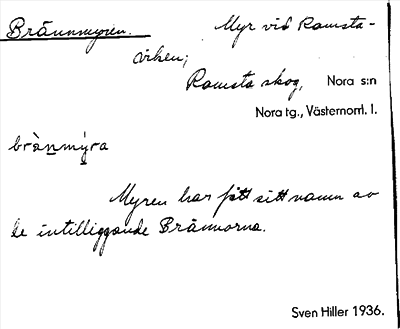 Brännmyren. Myr vid Ramsta-
viken;
Ramsta skog, Nora s:n
Nora tg., Västernorrl. l.
brànmýra
Myren har fått sitt namn av
de intilliggande Brännorna.
Sven Hiller 1936.